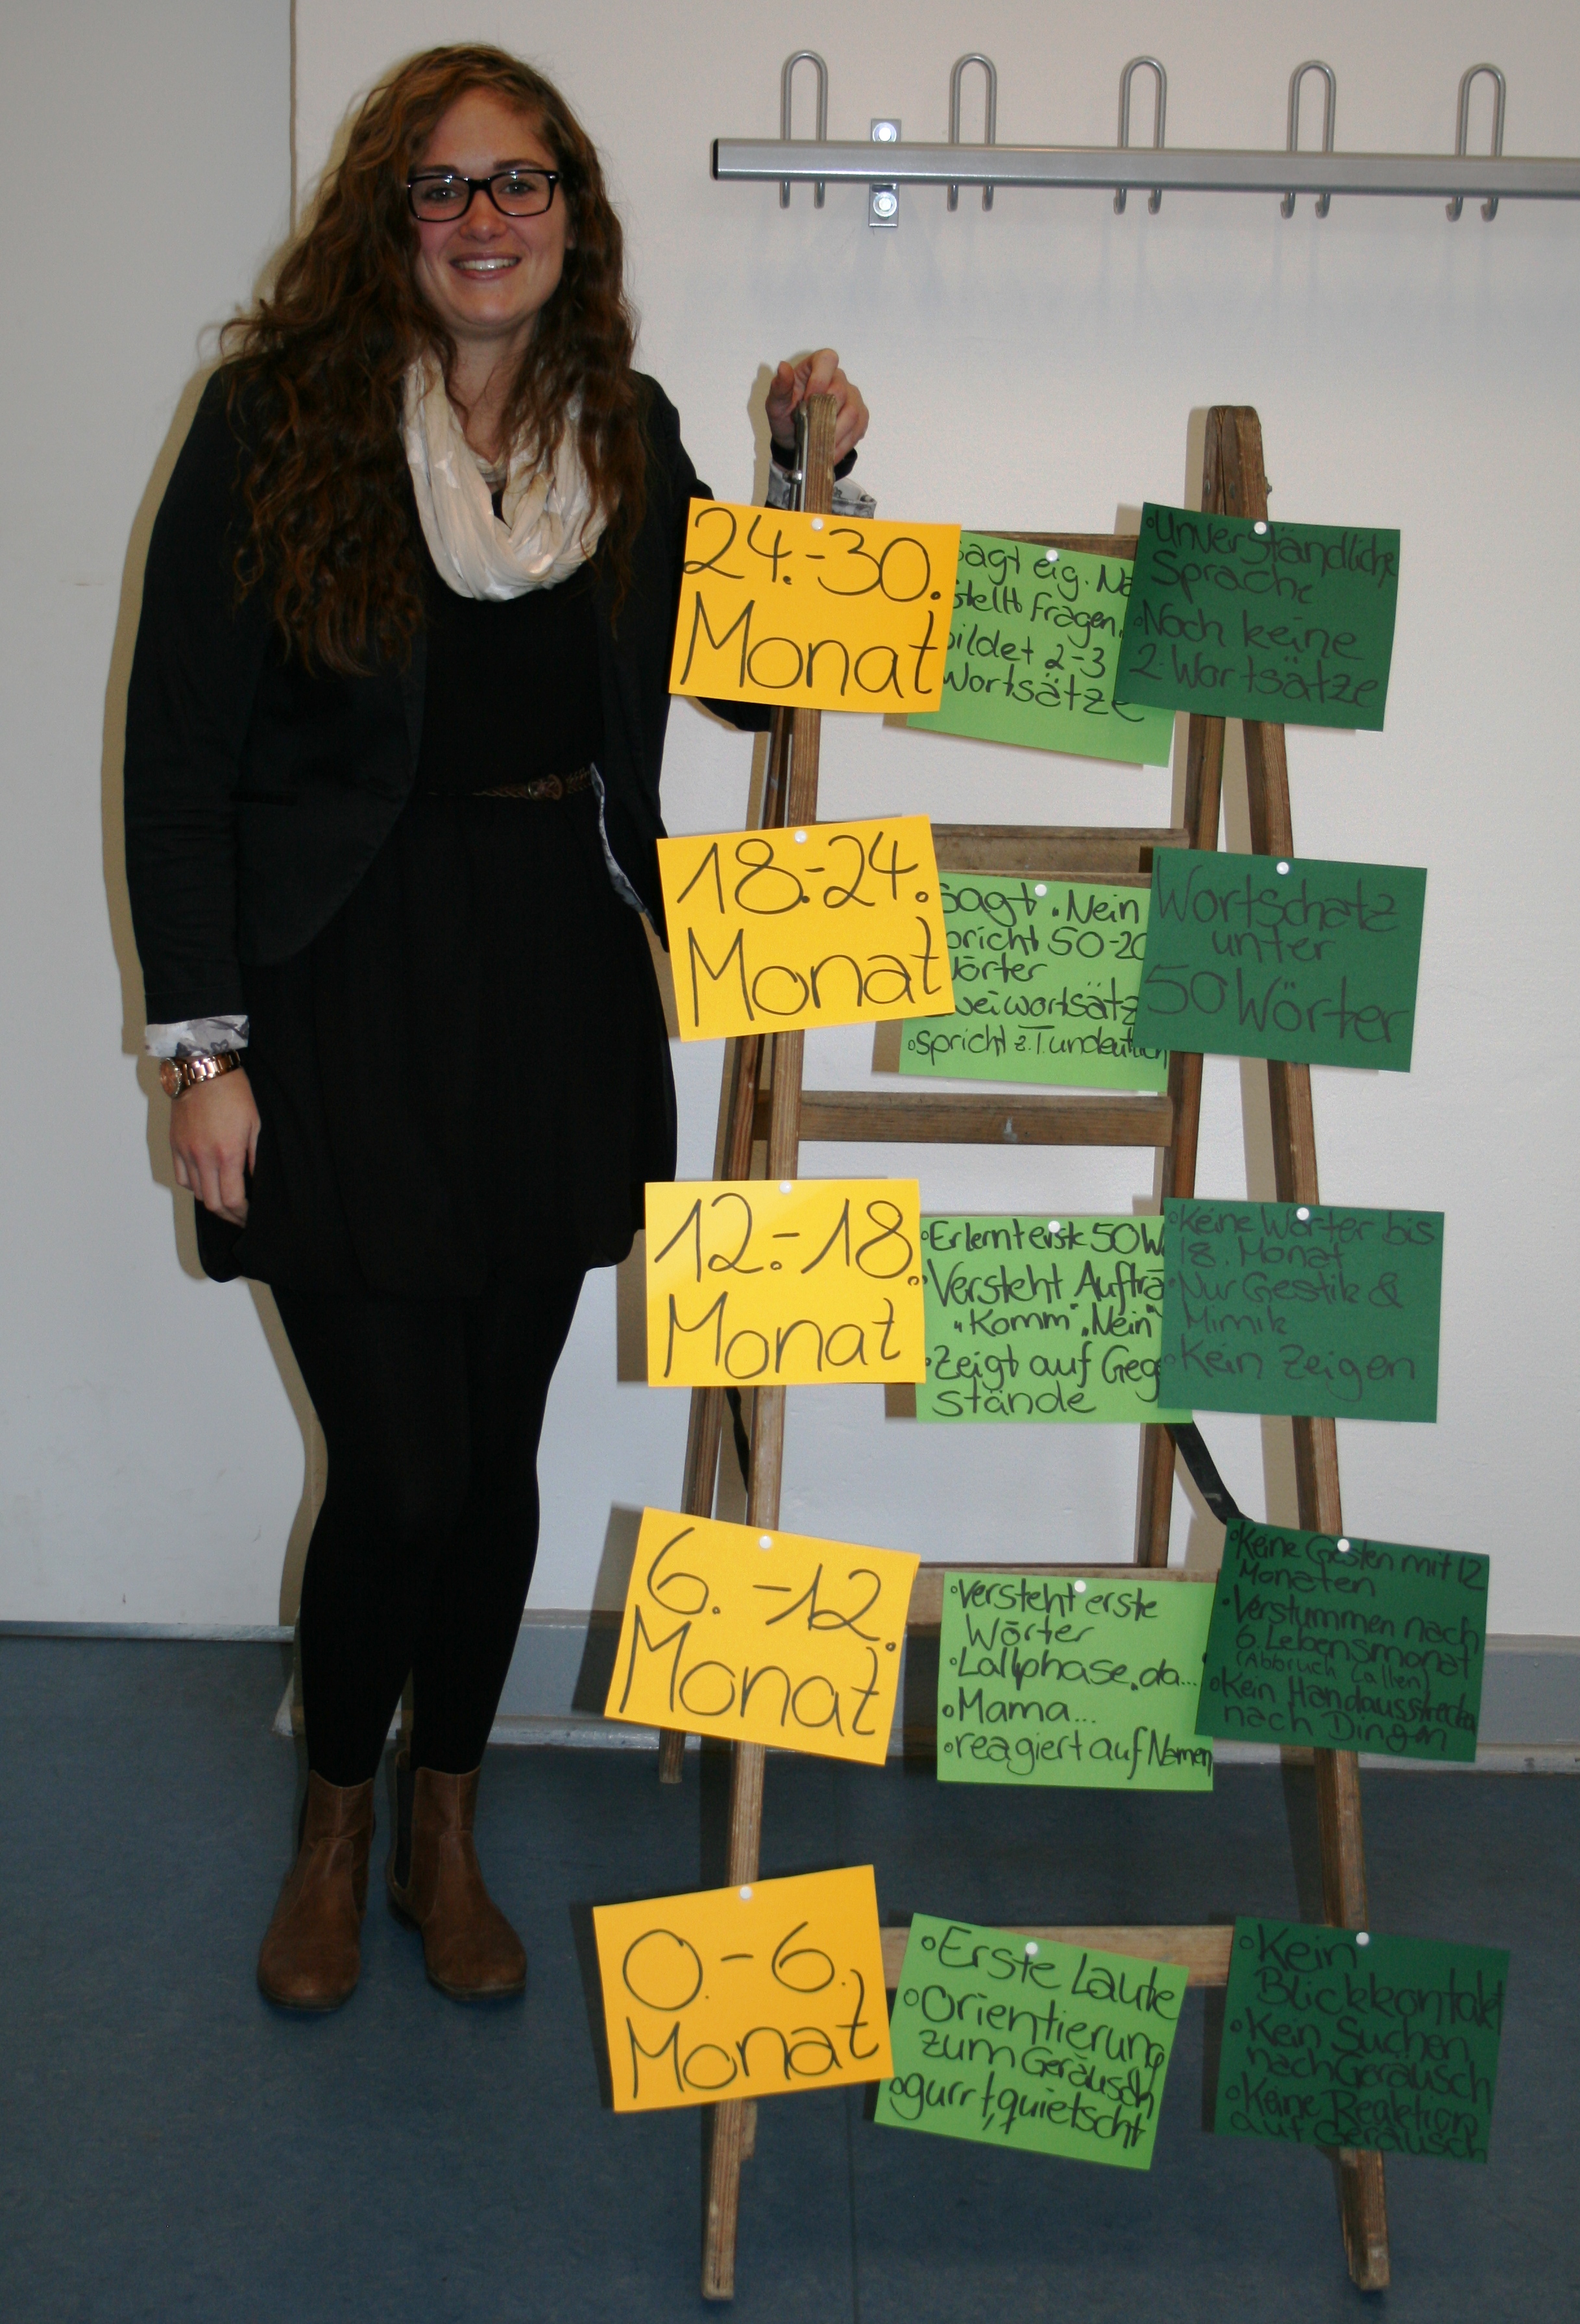 24.-30.
Monat
sagt eig. Na
stellt Fragen.
bildet 2-3
Wortsätze
•Unverständliche
Sprache
•Noch keine
2-Wortsätze
18.-24.
Monat
sagt „Nein
spricht 50-20
Wörter
weiwortsätz
•spricht z.T. undeutlich
Wortschatz
unter
50 Wörter
12.-18.
Monat
•Erlernt erste 50 W
•Versteht Aufträ
„Komm" „Nein"
•Zeigt auf Geg
stände
•Keine Wörter bis
18. Monat
•Nur Gestik &
Mimik
•Kein Zeigen
6.-12.
Monat
•Versteht erste
Wörter
•Lallphase „da...
•Mama...
•reagiert auf Namen
•Keine Gesten mit 12
Monaten
•Verstummen nach
6. Lebensmonat
(Abbruch Lallen)
•Kein Handausstrecken
nach Dingen
0.-6.
Monat
•Erste Laute
•Orientierung
zum Geräusch
•gurrt, quietscht
•Kein
Blickkontakt
•Kein Suchen
nach Geräusch
•Keine Reaktion
auf Geräusch